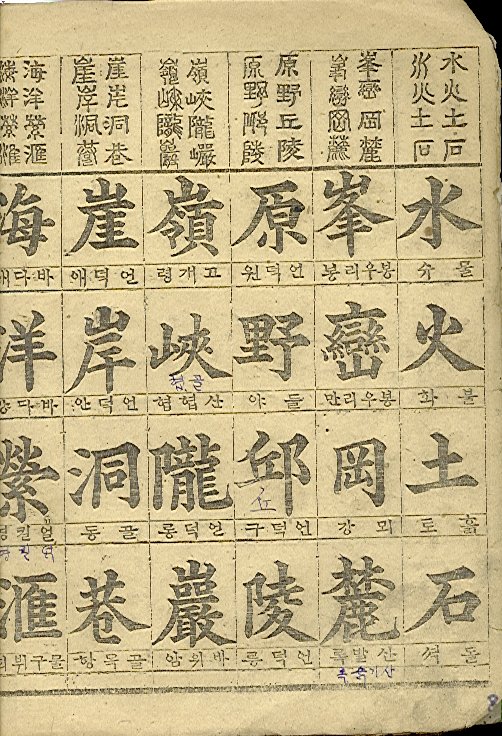 水火土石
水火土石
水
물슈
火
불화
土
흙토
石
돌셕
峯巒岡麓
峯巒岡麓
峯
봉우리봉
巒
봉우리만
岡
뫼강
麓
산발록
原野丘陵
原野丘陵
原
언덕원
野
들야
邱
丘
언덕구
陵
언덕릉
嶺峽隴巖
嶺峽隴巖
嶺
고개령
峽
골협
산협협
隴
언덕롱
巖
바위암
崖岸洞巷
崖岸洞巷
崖
언덕애
岸
언덕안
洞
골동
巷
골목항
海洋縈滙
海洋縈滙
海
바다해
洋
바다양
縈
얼킬영
滙
물구뷔회